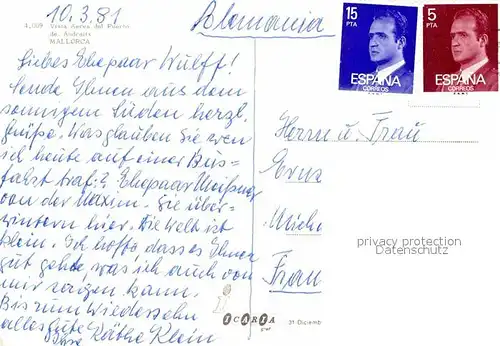 10.3.81
Alemania
4.009 Vista Aerea del Puerto
de Andraitx
MALLORCA
15
PTA
ESPAÑA
CORREOS
5
PTA
ESPAÑA
CORREOS
Liebes Ehepaar Wulff!
Sende Ihnen aus dem
sonnigen Süden herzl.
Grüße. Was glauben Sie wen
ich heute auf einer Bus-
fahrt traf:? Ehepaar
von der Maxim. Sie über-
wintern hier. Die Welt ist
klein. Ich hoffe dass es Ihnen
gut geht, was ich auch von
mir sagen kann.
Bis zum Wiedersehn
alles gute Käthe Klein
Herrn u. Frau
privacy protection
Datenschutz
ICARIA